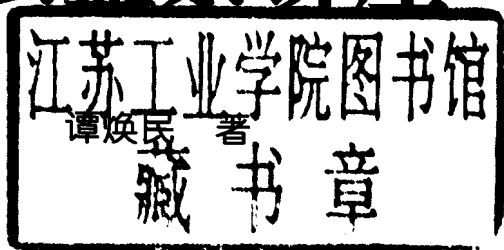 江苏工业学院图书馆
谭焕民 著
藏书章